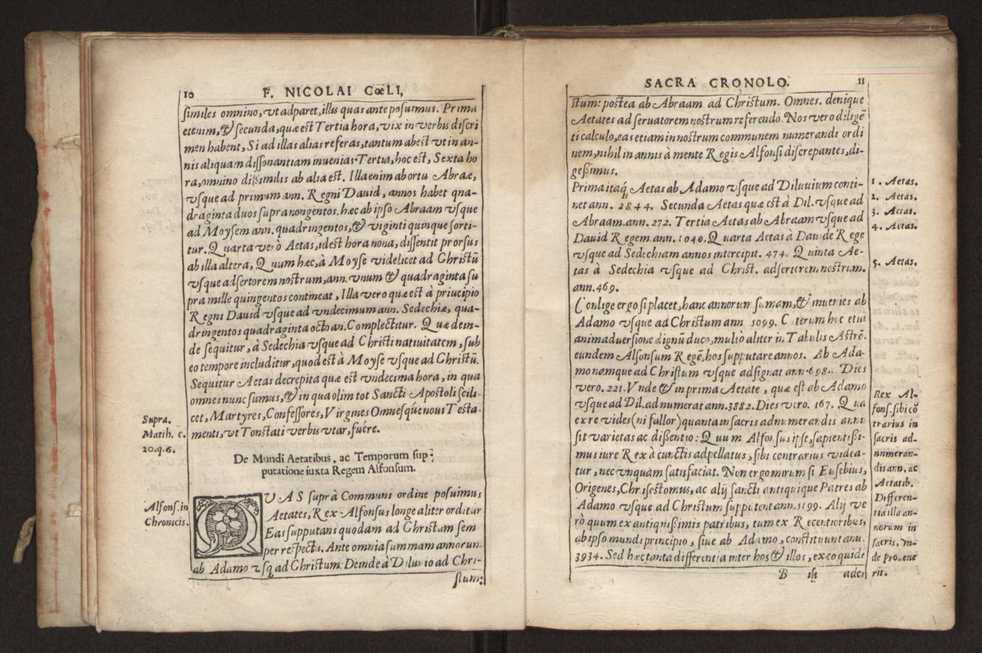 10 F. NICOLAI CœLI,
similes omnino, vt adparet, illis quas ante posuimus. Prima
etenim, & secunda, quæ est Tertia hora, vix in verbis discri
men habent, Si ad illas alias referas, tantum abest vt in an-
nis aliquam dissonantiam inuenias. Tertia, hoc est, Sexta ho
ra, omnino dissimilis ab alia est. Illa enim ab ortu Abraæ,
vsque ad primum ann. Regni Dauid, annos habet qua-
draginta duos supra nongentos. hæc ab ipso Abraam vsque
ad Moysem ann. quadringentos, & viginti quinque sorti-
tur. Quarta verò Aetas, idest hora nona, dissentit prorsus
ab illa altera, Quum hæc, à Moyse videlicet ad Christũ
vsque adsertorem nostrum, ann. vnum & quadraginta su
pra mille quingentos contineat, Illa vero quæ est à principio
Regni Dauid vsque ad vndecimum ann. Sedechiæ, qua-
dringentos quadraginta octo an. Complectitur. Quæ dein-
de sequitur, à Sedechia vsque ad Christi natiuitatem, sub
eo tempore includitur, quod est à Moyse vsque ad Christũ.
Sequitur Aetas decrepita quæ est vndecima hora, in qua
omnes nunc sumus, & in qua olim tot Sancti Apostoli scili-
cet, Martyres, Confessores, Virgines Omnesq́ue noui Testa-
menti, vt Tonstati verbis vtar, fuere.
Supra.
Matth. c.
20. q. 6.
De Mundi Aetatibus, ac Temporum sup
putatione iuxta Regem Alfonsum.
Alfons. in
Chronicis.
QVAS suprà Communs ordine posuimus
Aetates, Rex Alfonsus longe aliter orditur
Eas supputans quodam ad Christum sem
per respectu. Ante omnia summam annorum
ab Adamo vsq̃ ad Christum. Deinde à Diluuio ad Chri-
stum:
SACRA CRONOLO. 11
stum: postea ab Abraam ad Christum. Omnes. denique
Aetates ad seruatorem nostrum referendo. Nos vero diligẽ
ti calculo, eas etiam in nostrum communem numerandi ordi
nem, nihil in annis à mente Regis Alfonsi discrepantes, di-
gessimus.
Prima itaq́ Aetas ab Adamo vsque ad Diluuium conti-
net ann. 2844. Secunda Aetas quæ est à Dil. vsque ad
Abraam. ann. 272. Tertia Aetas ab Abraam vsque ad
Dauid Regem. ann. 1040. Quarta Aetas à Dauide Rege
vsque ad Sedechiam annos intercipit. 474. Quinta Ae-
tas à Sedechia vsque ad Christ. adsertorem nostrum.
ann. 469.
1. Aetas.
2. Aetas.
3. Aetas.
4. Aetas.
5. Aetas.
Conlige ergo si placet, hanc annorum sumam, & inuenies ab
Adamo vsque ad Christum ann 5099. Caterum hoc etiã
animaduersione dignũ duco, multo aliter in Tabulis Astrõ.
eundem Alfonsum Regẽ, hos supputare annos. Ab Ada-
mo nemque ad Christum vsque adsignat ann. 698... Dies
vero. 221. Vnde & in prima Aetate, quæ est ab Adamo
vsque ad Dil. ad numerat ann. 3882. Dies vero. 167. Qua
ex re vides (ni fallor) quanta in sacris adnumerandis annis
sit varietas ac dissentio: Quum Alfonsus ipse, sapientissi-
mus iure Rex à cunctis adpellatus, sibi contrarius videa-
tur, nec vnquam satisfaciat. Non ergo mirum si Eusebius,
Origenes, Chrisostomus, ac alij sancti antiquique Patres ab
Adamo vsque ad Christum supputent ann. 5199. Alij ve
rò quum ex antiquissimis patribus, tum ex Recentioribus,
ab ipso mundi principio, siue ab Adamo, constituunt ann.
3934. Sed hæc tanta differentia inter hos & illos, ex eo quidẽ
Rex Al-
fons. sibi cõ
trarius in
sacris ad-
numeran-
dis ann. ac
Aetatib.
Differen-
tia illa an-
norum in
sacris, vn-
de proue-
rit.
B iij adeo